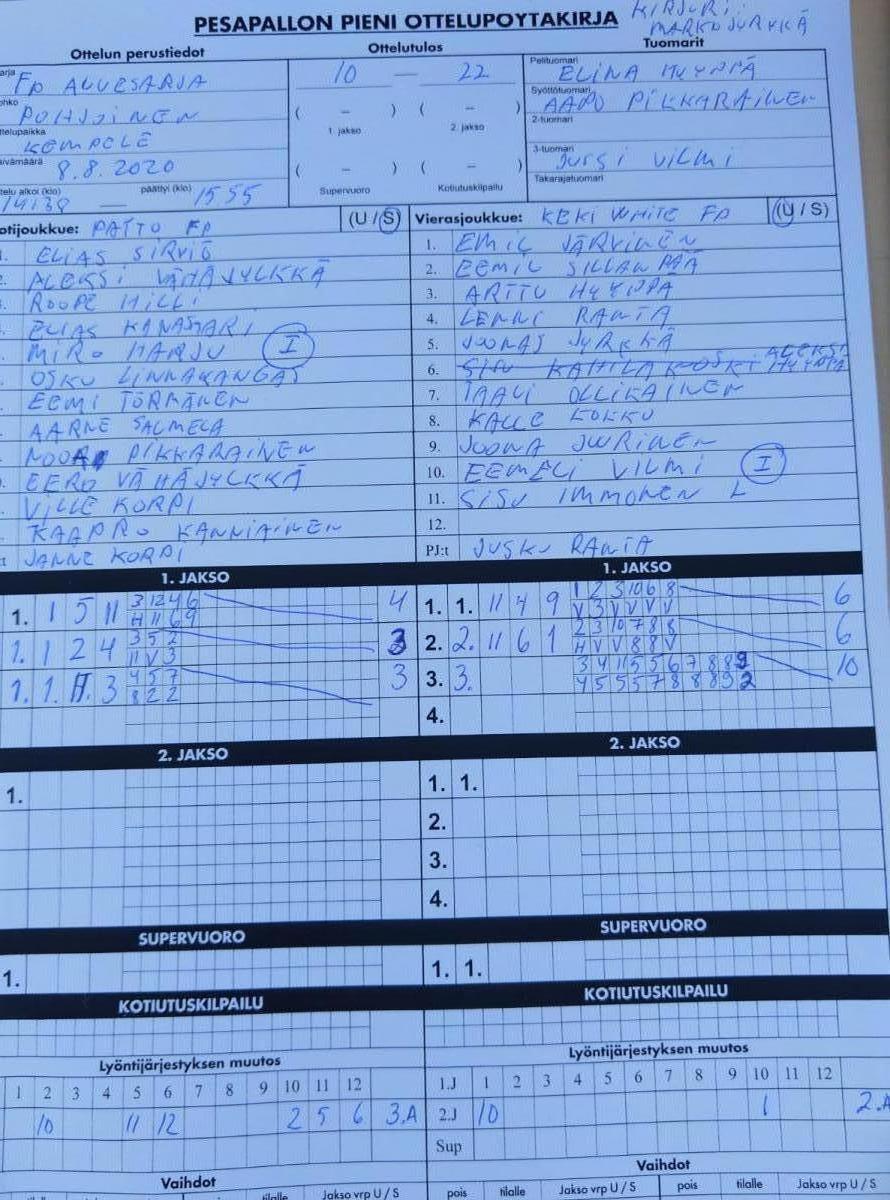 PESAPALLON PIENI OTTELUPOYTAKIRJA
KIRJURI:
MARKO JURKKA
Ottelun perustiedot
Ottelutulos
Tuomarit
FP ALUESARJA
POHJOINEN
KEMPELE
8.8.2020
päättyi (klo)
14 38 — 15 55
10 — 22
( – ) ( – )
1. jakso 2. jakso
( – ) ( – )
Supervuoro Kotiutuskilpailu
Pelituomari
ELINA HYYPPÄ
Syöttötuomari
AAPO PIKKARAINEN
2-tuomari
3-tuomari
JUSSI VILMI
Takarajatuomari
otijoukkue: PATTO FP (U / S)
ELIAS SIRVIÖ
ALEKSI VÄHÄJYLKKÄ
ROOPE HILLI
MIRO HARJU I
OSKU LINNAKANGAS
EEMI TÖRMÄNEN
AARNE SALMELA
NOOA PIKKARAINEN
EERO VÄHÄJYLKKÄ
VILLE KORPI
KAAPRO KANNIAINEN
JANNE KORPI
Vierasjoukkue: KEKI WHITE FP (U / S)
1. EMIL JÄRVINEN
2. EEMIL SILLANPÄÄ
3. ARTTU HYYPPÄ
4. LENNI RANTA
5. JOONAS JYRKKÄ
6. ALEKSI HYYPPÄ
7. TAALI OLLIKAINEN
8. KALLE KOKKO
9. JOONA JUURINEN
10. EEMELI VILMI I
11. SISU IMMONEN L
12.
PJ:t JUSKU RANTA
1. JAKSO
1. 1 5 11 3 12 4 6 4
H 11 6 9
1. 1 2 4 3 5 2 3
11 V 3
1. 1. 11. 3 4 5 7 3
8 2 2
1. JAKSO
1. 1. 11 4 9 1 2 3 10 6 8 6
V 3 V V V V
2. 2. 11 6 1 2 3 10 7 8 8 6
H V V 8 8 V
3. 3. 3 4 11 5 5 6 7 8 8 9 10
4 5 5 5 7 8 8 8 9 2
4.
2. JAKSO
1.
2. JAKSO
1. 1.
2.
3.
4.
SUPERVUORO
1.
SUPERVUORO
1. 1.
KOTIUTUSKILPAILU
KOTIUTUSKILPAILU
Lyöntijärjestyksen muutos
1 2 3 4 5 6 7 8 9 10 11 12
10 11 12 2 5 6 3.A
Lyöntijärjestyksen muutos
1.J 1 2 3 4 5 6 7 8 9 10 11 12
2.J 10 1 2.A
Sup
Vaihdot
tilalle Jakso vrp U / S tilalle Jakso vrp U / S
Vaihdot
pois tilalle Jakso vrp U / S pois tilalle Jakso vrp U / S